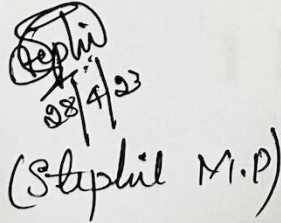 Stephil
28/4/23
(Stephil M.P)